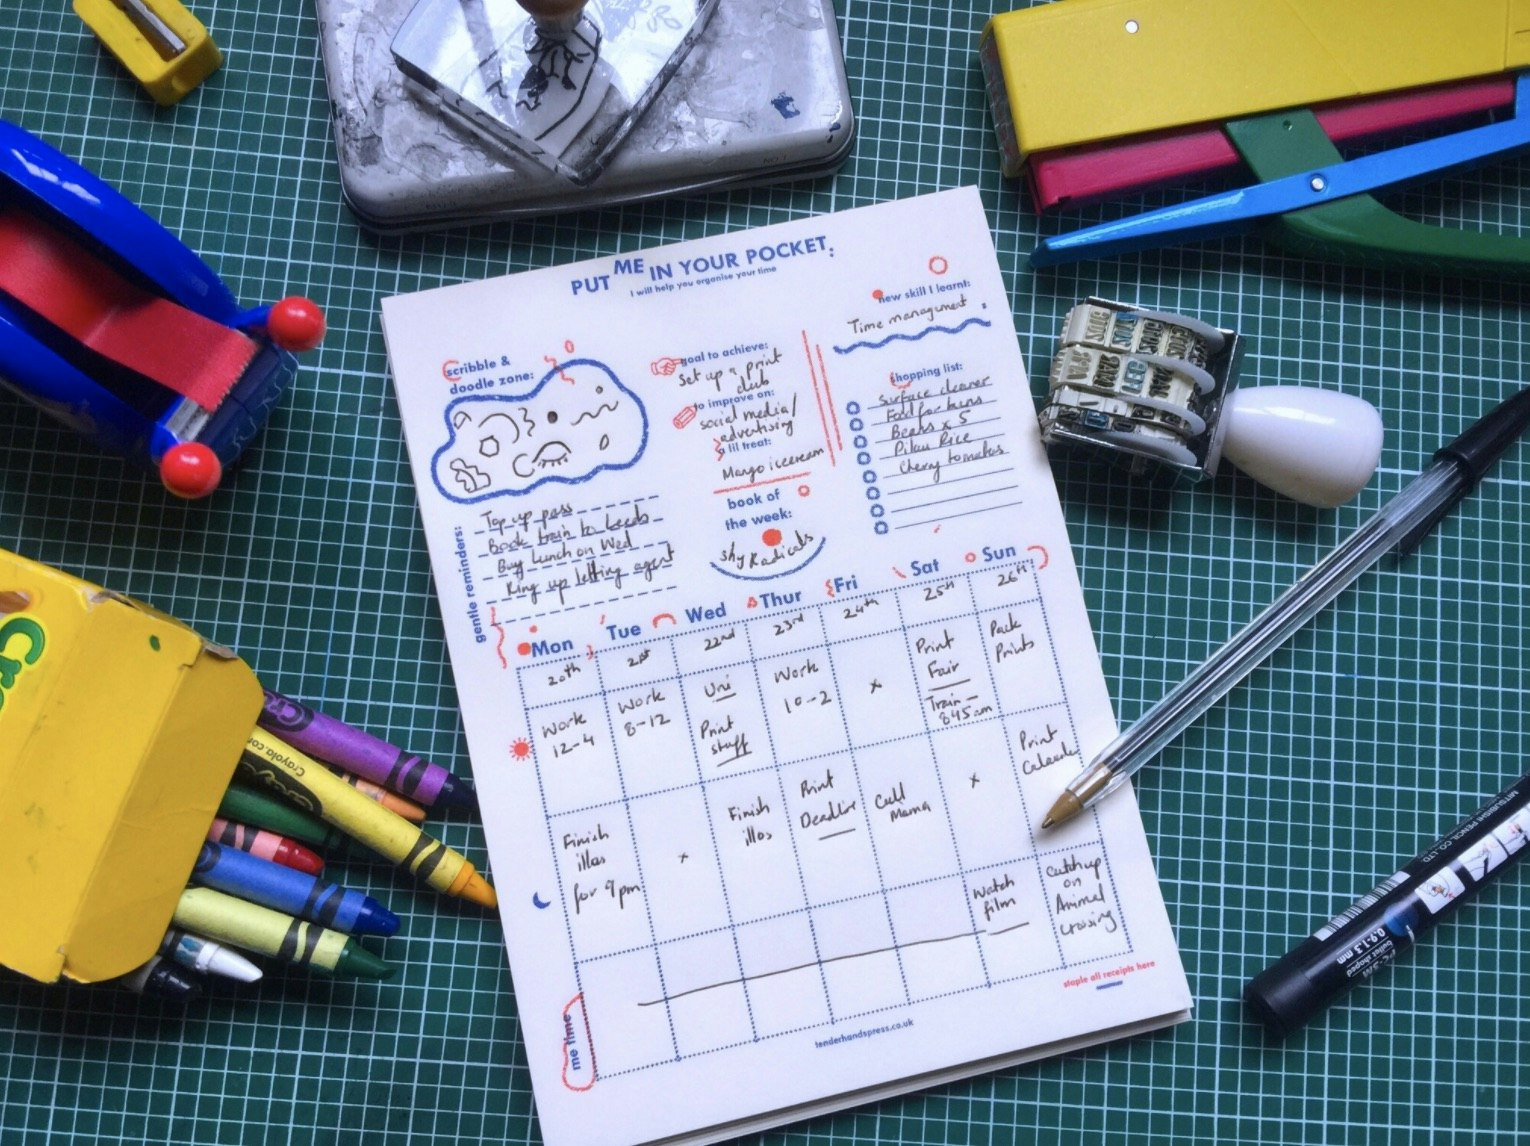 PUT ME IN YOUR POCKET:
I will help you organise your time
new skill I learnt:
Time management
scribble &
doodle zone:
goal to achieve:
Set up a print
club
to improve on:
social media/
advertising
a lil treat:
Mango icecream
book of
the week:
Shy Radicals
shopping list:
Surface cleaner
Food for buns
Beans x 5
Pilau Rice
Cherry tomatoes
gentle reminders:
Top up pass
Book train to Leeds
Buy lunch on Wed
Ring up letting agent
Mon Tue Wed Thur Fri Sat Sun
20th 21st 22nd 23rd 24th 25th 26th
Work
12-4
Work
8-12
Uni
Print
stuff
Work
10-2
x
Print
Fair
Train -
845am
Pack
Prints
Finish
illos
for 9pm
x
Finish
illos
Print
Deadline
Call
Mama
x
Print
Calendar
me time
Watch
film
Catch up
on
Animal
Crossing
staple all receipts here
tenderhandspress.co.uk
Crayola.com
MITSUBISHI PENCIL CO., LTD.
PC-5M
bullet shaped
0.9-1.3 mm